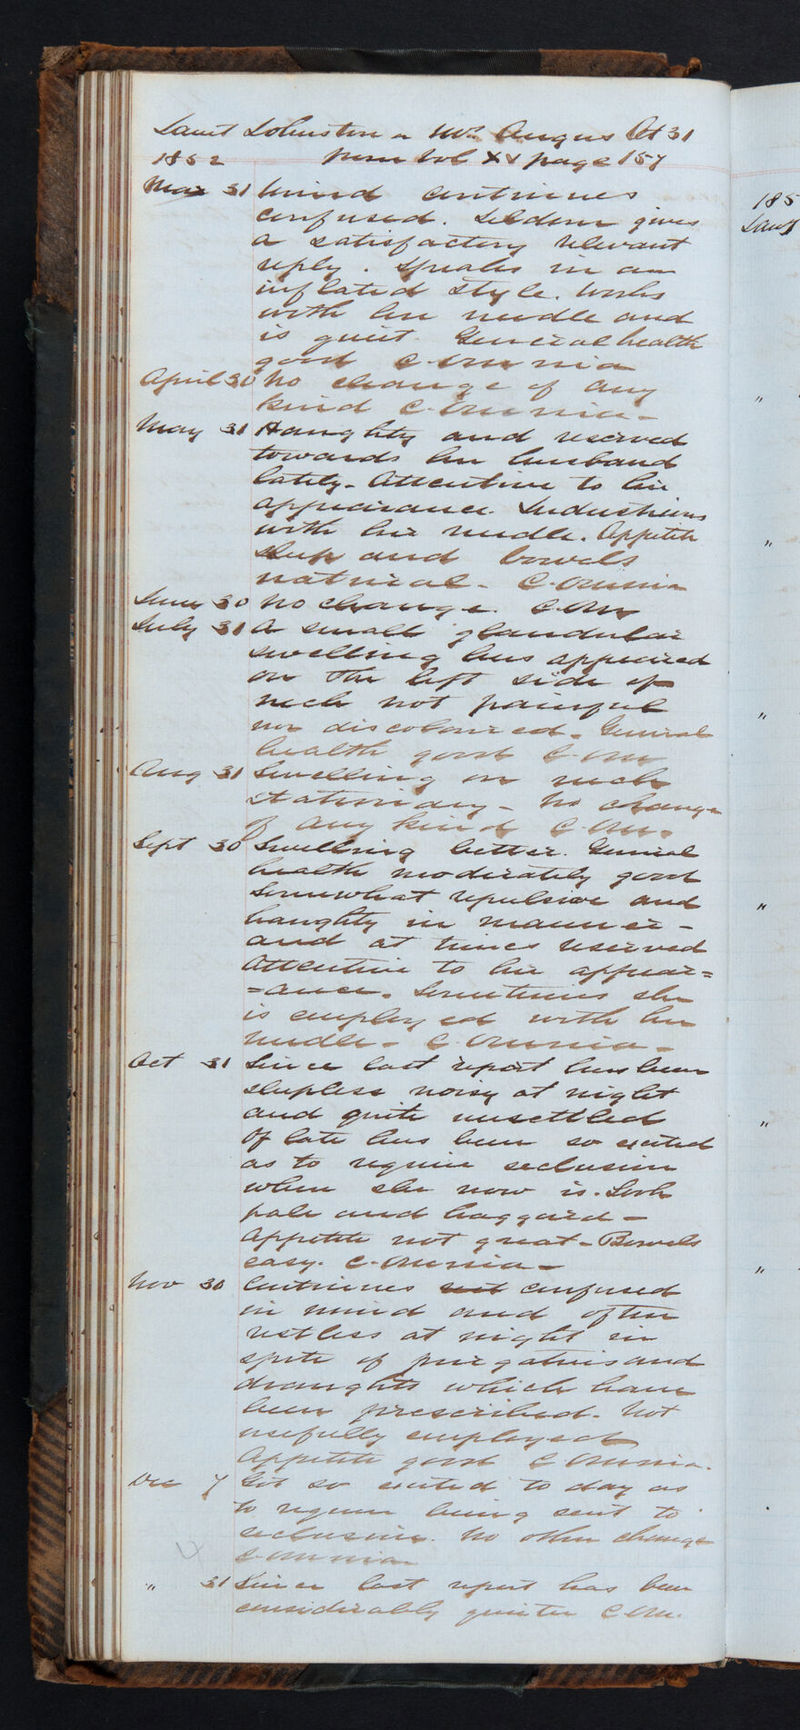 Janet Johnston or Mrs Angus Æt 31
1852 from Vol XV page 157
Mar 31 Mind continues
confused. Seldom gives
a satisfactory relevant
reply. Speaks in an
inflated style. Works
with her needle and
is quiet. General health
good C. Omnia
April 30 No change of any
kind C. Omnia -
May 31 Haughty and reserved
towards her husband
lately - Attentive to her
appearance. Industrious
with her needle. Appetite
sleep and bowels
natural - C. Omnia
June 30 No change. C. Om
July 31 A small glandular
swelling has appeared
on the left side of
neck not painful
nor discoloured. General
health good C. Om
Aug 31 Swelling on neck
stationary - No change
of any kind C. Om.
Sept 30 Swelling better. General
health moderately good
Somewhat repulsive and
haughty in manner -
and at times reserved
Attentive to her appear=
=ance. Sometimes she
is employed with her
needle - C. Omnia -
Oct 31 Since last report has been
sleepless noisy at night
and quite unsettled
Of late has been so excited
as to require seclusion
when she now is. Look
pale and haggard -
Appetite not great - Bowels
easy. C. Omnia -
Nov 30 Continues confused
in mind and often
restless at night in
spite of purgatives and
draughts which have
been prescribed. Not
usefully employed
Appetite good C Omnia.
Dec 7 Got so excited to day as
to require being sent to
seclusion. No other change
C Omnia
" 31 Since last report has been
considerably quieter C Om.
185
Janr
"
"
"
"
"
"